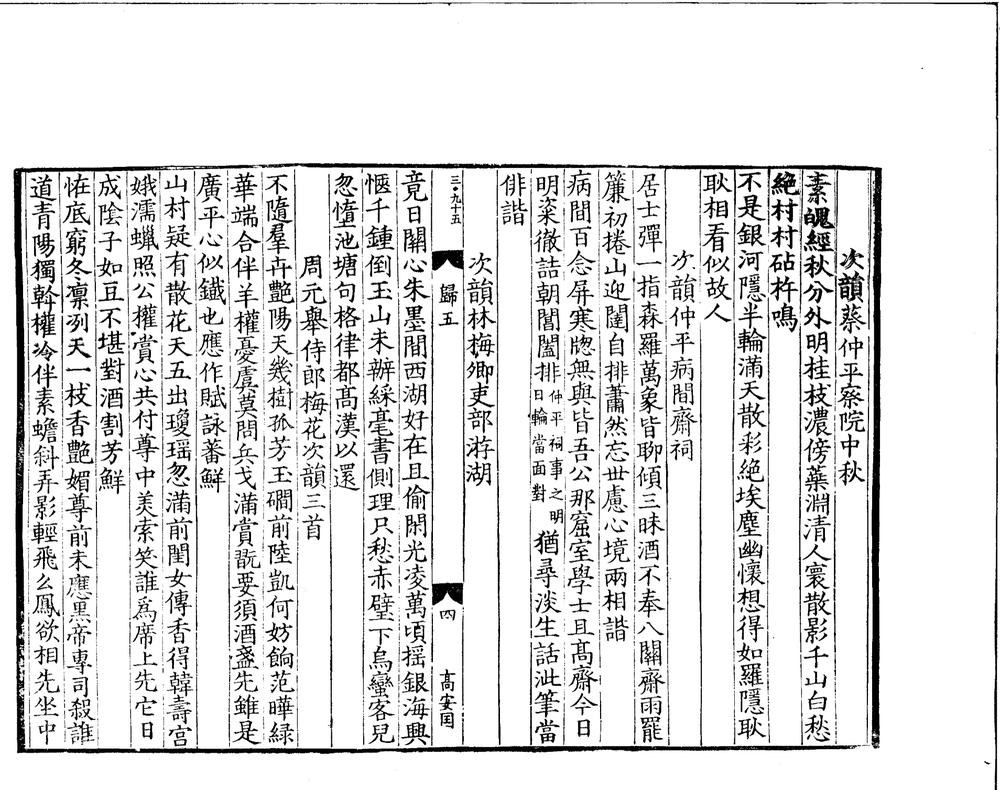 次韻蔡仲平察院中秋
素魄經秋分外明桂枝濃傍蘂淵清人寰散影千山白愁
絕村村砧杵鳴
不是銀河隱半輪滿天散彩絕埃塵幽懷想得如羅隱耿
耿相看似故人
次韻仲平病間齋祠
居士彈一指森羅萬象皆聊傾三昧酒不奉八關齋雨罷
簾初捲山迎闥自排蕭然忘世慮心境兩相諧
病間百念屏寒牕無與皆吾公那窟室學士且髙齋今日
明粢徹詰朝閶闔排仲平祠事之明日輪當面對猶尋淡生話泚筆當
俳諧
次韻林梅卿吏部游湖
三・九十五
歸五
四
高安囯
竟日關心朱墨間西湖好在且偷閑光凌萬頃摇銀海興
愜千鍾倒玉山未辦綵毫書側理只愁赤壁下烏鸞客兒
忽憶池塘句格律都髙漢以還
周元舉侍郎梅花次韻三首
不隨羣卉艶陽天幾樹孤芳玉磵前陸凱何妨餉范曄緑
華端合伴羊權憂虞莫問兵戈滿賞翫要須酒盞先雖是
廣平心似鐵也應作賦詠蕃鮮
山村疑有散花天五出瓊瑶忽滿前閨女傳香得韓壽宫
娥濡蠟照公權賞心共付尊中美索笑誰爲席上先它日
成陰子如豆不堪對酒割芳鮮
恠底窮冬凛冽天一枝香艶媚尊前未應黒帝專司殺誰
道青陽獨斡權冷伴素蟾斜弄影輕飛幺鳳欲相先坐中